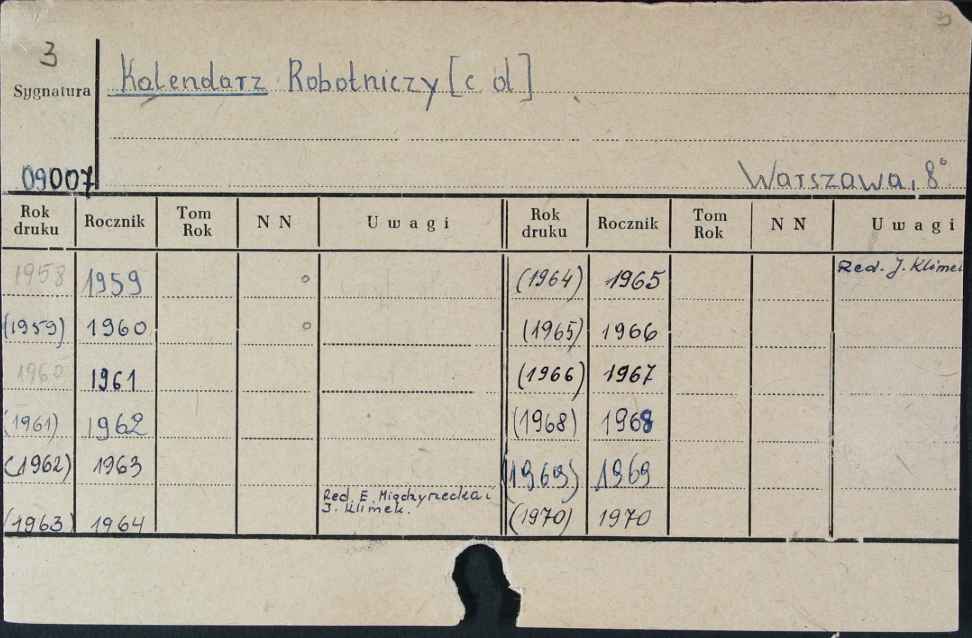 3
3
Sygnatura
Kalendarz Robotniczy [c d]
09007
Warszawa, 8°
Rok druku Rocznik Tom Rok N N Uwagi Rok druku Rocznik Tom Rok N N Uwagi
1958 1959 o (1964) 1965 Red. J. Klimek
(1959) 1960 o (1965) 1966
1960 1961 (1966) 1967
(1961) 1962 (1968) 1968
(1962) 1963 (1969) 1969
Red. E. Międzyrzecka i
J. Klimek.
(1963) 1964 (1970) 1970